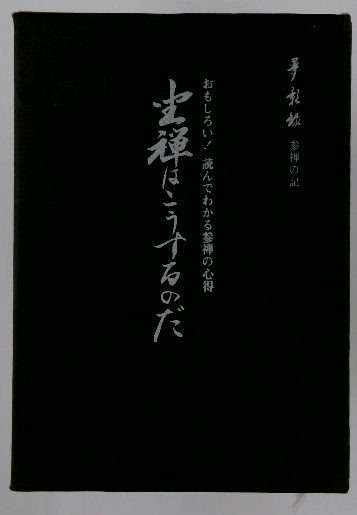 夢影録 参禅の記
おもしろい！読んでわかる参禅の心得
坐禅はこうするのだ